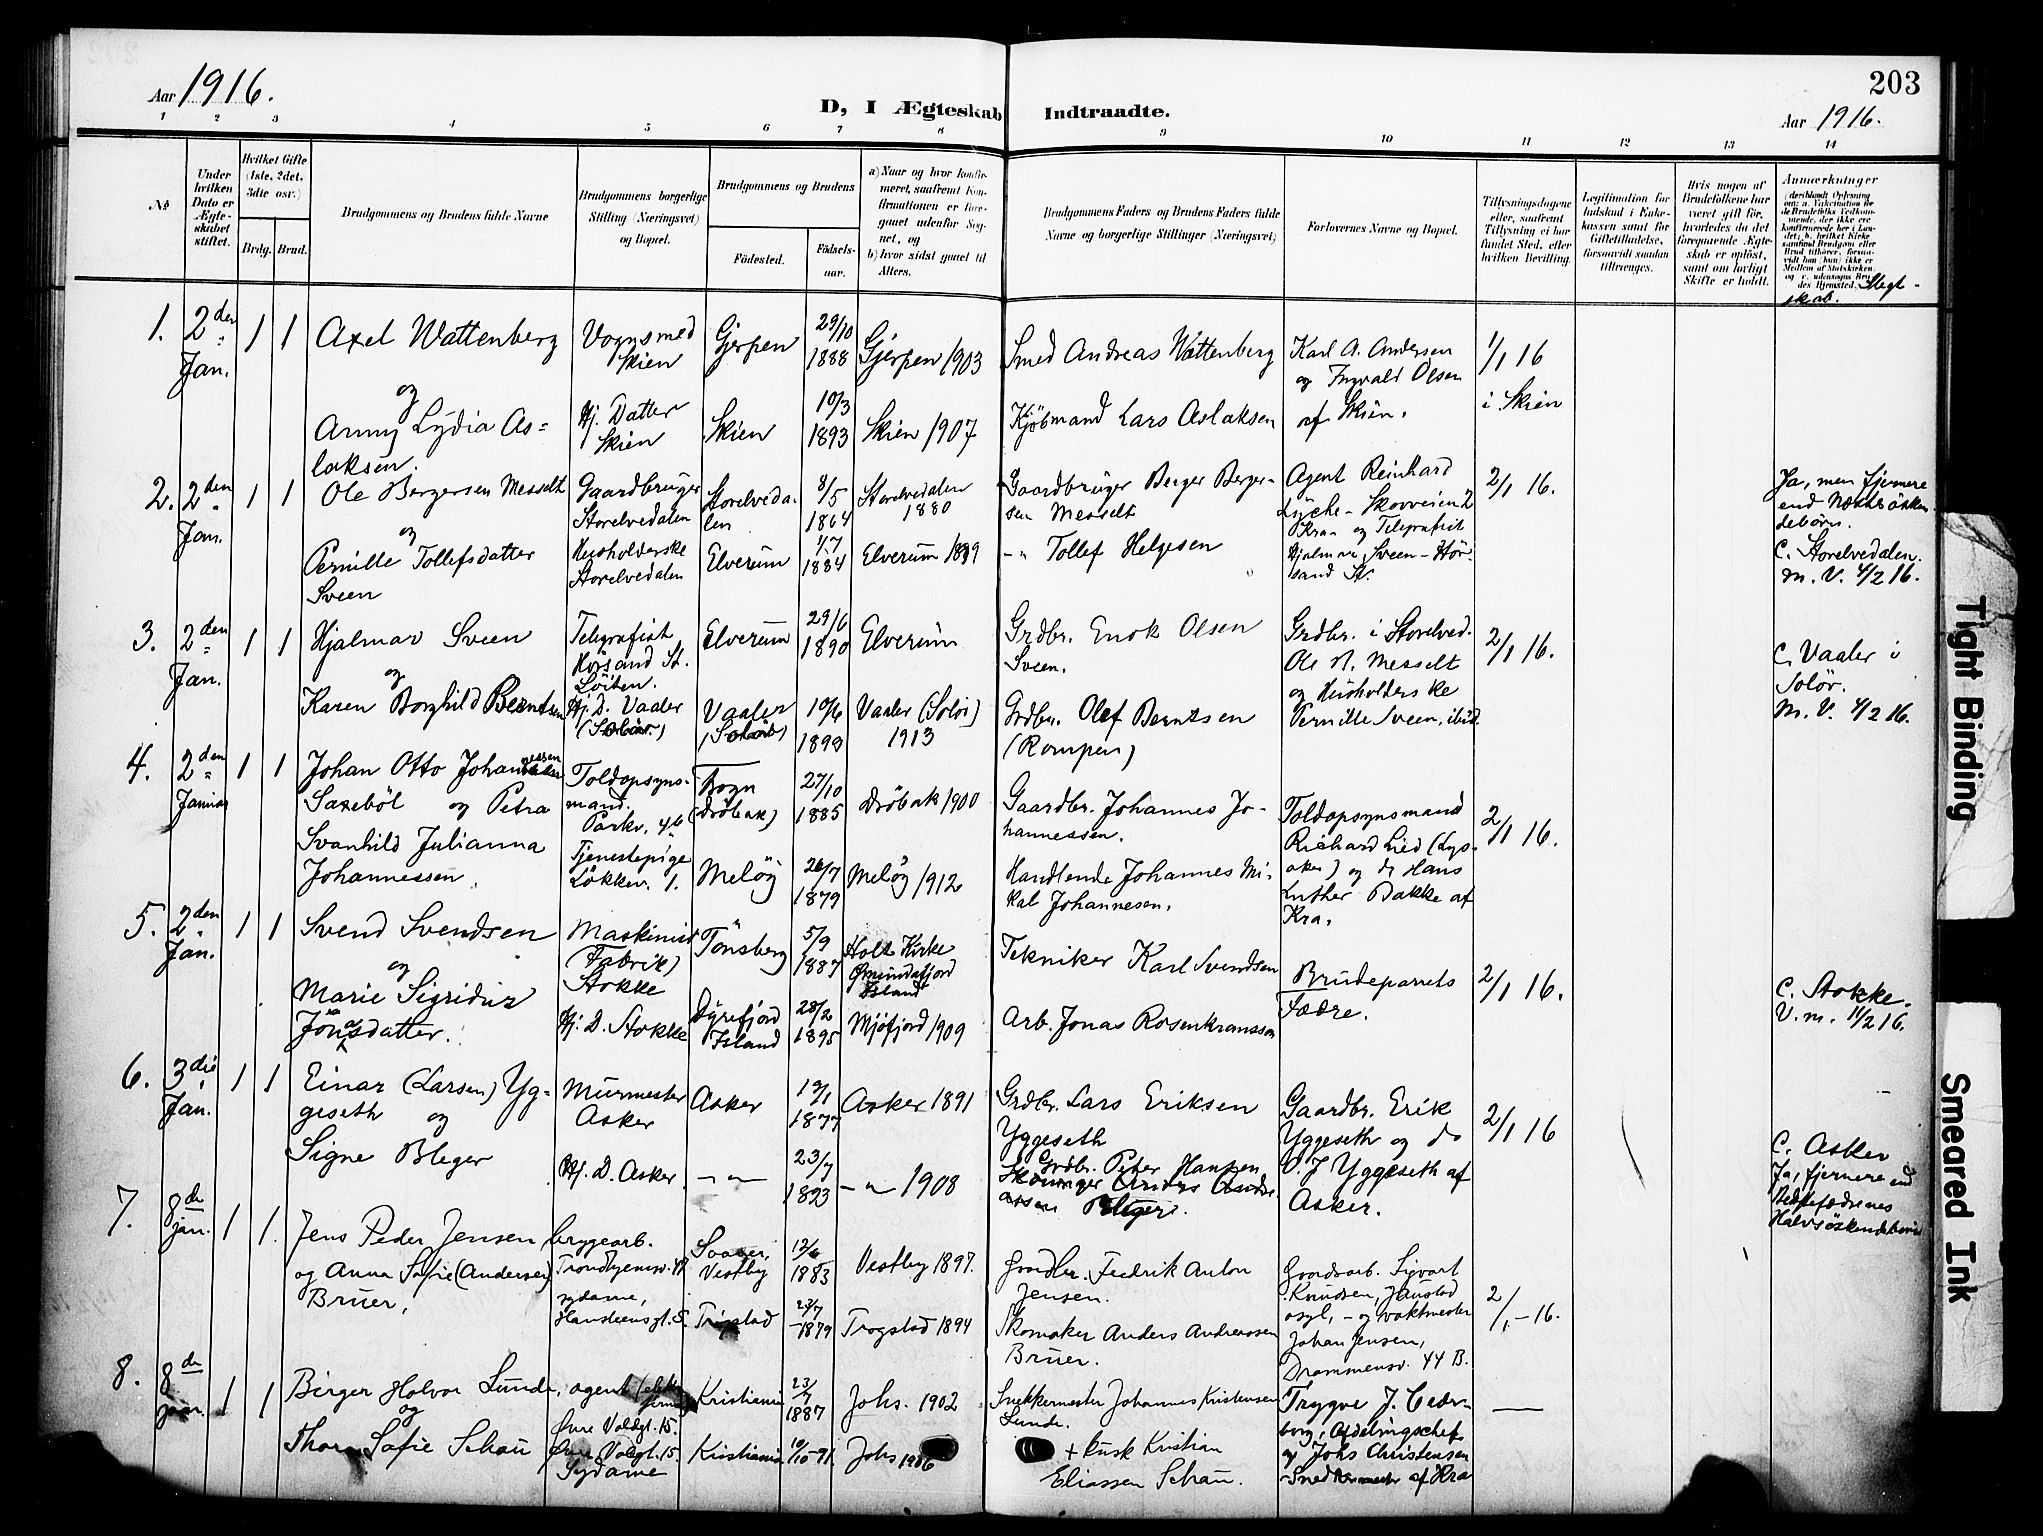 203
Aar 1916.
D, I Ægteskab Indtraadte.
Aar 1916.
1 2 3 4 5 6 7 8 9 10 11 12 13 14
No
Under hvilken Dato er Ægteskabet stiftet.
Hvilket Gifte (1ste, 2det, 3die osv.)
Brdg. Brud.
Brudgommens og Brudens fulde Navne
Brudgommens borgerlige Stilling (Næringsvei) og Bopæl.
Brudgommens og Brudens
Fødested.
Fødselsaar.
a) Naar og hvor konfirmeret, saafremt Konfirmationen er foregaaet udenfor Sognet, og
b) hvor sidst gaaet til Alters.
Brudgommens Faders og Brudens Faders fulde Navne og borgerlige Stillinger (Næringsvei)
Forlovernes Navne og Bopæl.
Tillysningsdagene eller, saafremt Tillysning ei har fundet Sted, efter hvilken Bevilling.
Legitimation for Indskud i Enkekassen samt for Giftetilladelse, forsaavidt saadan tiltrænges.
Hvis nogen af Brudefolkene har været gift før, hvorledes da det foregaaende Ægteskab er opløst, samt om lovligt Skifte er holdt.
Anmærkninger
Slegtskab.
1. 2den Jan. 1 1
Axel Wattenberg
og
Anny Lydia Aslaksen.
Vognsmed
Skien
Hj. Datter
Skien
Gjerpen
Skien
29/10 1888
10/3 1893
Gjerpen 1903
Skien 1907
Smed Andreas Wattenberg
Kjöbmand Lars Aslaksen
Karl A. Andersen
og Ingvald Olsen
af Skien.
1/1 16
i Skien
2. 2den Jan. 1 1
Ole Bergersen Messelt
og
Pernille Tollefsdatter
Sveen
Gaardbruger
Storelvedalen
Husholderske
Storelvedalen
Storelvedalen
Elverum
8/5 1864
4/7 1884
Storelvedalen
1880
Elverum 1899
Gaardbruger Berger Bergersen Messelt
-"- Tollef Helgesen
Agent Reinhard
Lyche - Skovveien 2
Kra. og Telegrafist
Hjalmar Sveen - Hörsand St.
2/1 16.
Ja, men fjernere
end Næstsöskendebörn.
C. Storelvedalen.
m. V. 4/2 16.
3. 2den Jan. 1 1
Hjalmar Sveen
og
Karen Borghild Berntsen
Telegrafist
Horsand St.
Löiten.
Hj. D. Vaaler
(Solör.)
Elverum
Vaaler
(Solör)
29/6 1890
10/6 1893
Elverum
Vaaler (Solör)
1913
Grdbr. Enok Olsen
Sveen.
Grdbr. Olef Berntsen
(Rompen)
Grdbr. i Storelved.
Ole N. Messelt
og Husholderske
Pernille Sveen, ibid.
2/1 16.
C. Vaaler i
Solör.
M. V. 4/2 16.
4. 2den Januar 1 1
Johan Otto Johannessen
Saxeböl og Petra
Svanhild Julianna
Johannessen.
Toldopsynsmand.
Parkv. 4b
Tjenestepige
Løkkev. 1.
Frogn
(Dröbak)
Melöy
27/10 1885
26/7 1879
Dröbak 1900
Melöy 1912
Gaardbr. Johannes Johannessen.
Handlende Johannes Mikal Johannesen.
Toldopsynsmand
Richard Lied (Lysaker) og do Hans
Luther Bakke af
Kra.
2/1 16.
5. 2den Jan. 1 1
Svend Svendsen
og
Marie Sigridur
Jonasdatter.
Maskinist
(Fabrik)
Stokke
Hj. D. Stokke
Tönsberg
Dyrefjord
Island
5/9 1887
28/2 1895
Holt Kirke
Island
Mjófjord 1909
Tekniker Karl Svendsen
Arb. Jonas Rosenkransson
Brudeparrets
Fædre.
2/1 16.
C. Stokke.
V. m. 11/2 16.
6. 3die Jan. 1 1
Einar (Larsen) Yggeseth og
Signe Bleger
Murmester
Asker
Hj. D. Asker
Asker
- " -
19/1 1877
23/7
Asker 1891
- " - 1908
Grdbr. Lars Eriksen
Yggeseth
Grdbr. Peter Hansen
Bleger.
Gaardbr. Erik
Yggeseth og do
V. J Yggeseth af
Asker.
2/1 16
C. Asker
Ja, fjernere end
Halvsöskendebörn
7. 8de jan. 1 1.
Jens Peder Jensen,
og Anna Sofie (Andersen)
Bruer,
bryggearb.
Trondhjemsv.
sydame,
Hansteensgt. 5.
Vestby
Trøgstad
12/6 1883
23/7 1879
Vestby 1897.
Trøgstad 1894
Grdbr. Fredrik Anton
Jensen.
Skomaker Anders Andreassen
Bruer.
Gaardsarb. Sigvart
Knudsen, Gaustad
asyl, - og vaktmester
Johan Jensen,
Drammensv. 44 B.
2/1 - 16.
8. 8de jan. 1 1
Birger Halvor Lunde,
og
Thora Sofie Schau
agent
Øvre Voldgt. 15.
Øvre Voldgt. 15.
Sydame
Kristiania
Kristiania
23/7 1887
Johs. 1902
Johs 1906
Snekkermester Johannes Kristensen
Lunde.
+ kusk Kristian
Eliassen Schau.
Trygve J. Cederborg, Afdelingschef
og Johs Christensen
Snedkermester af Kra
Tight Binding
Smeared Ink